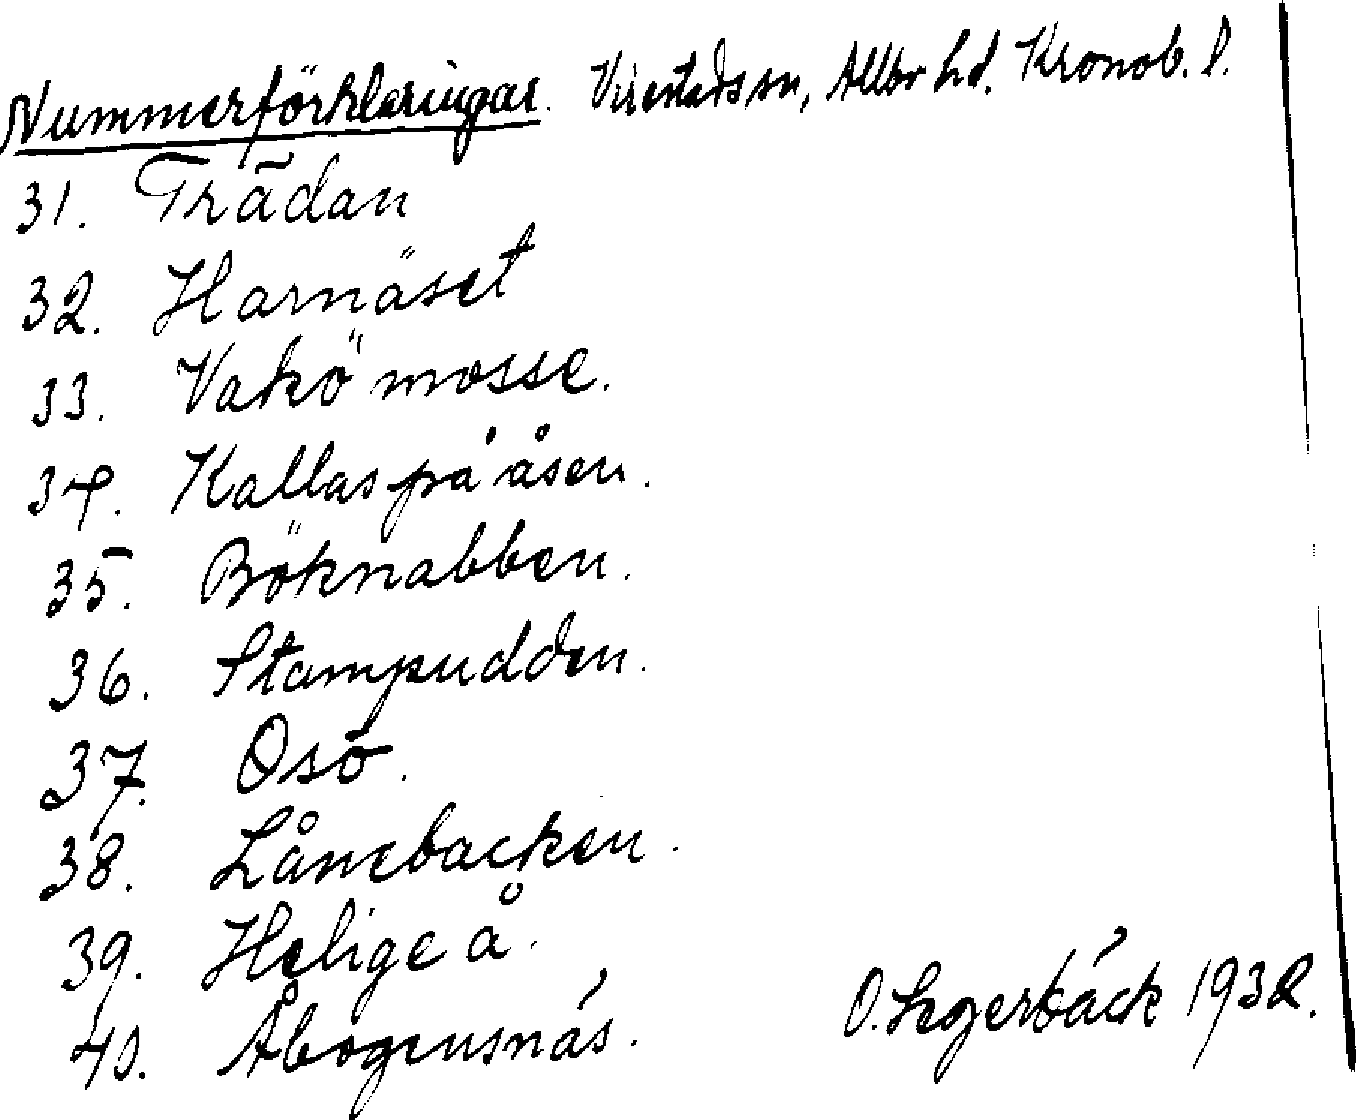 Nummerförklaringar. Virestads sn, Allbo hd. Kronob. l.
31. Trädan
32. Harnäset
33. Vakö mosse.
34. Kallas på åsen.
35. Böknabben.
36. Stampudden.
37. Osö.
38. Lånebacken.
39. Helige å.
40. Åbogensnäs.
O. Segerbäck 1932.